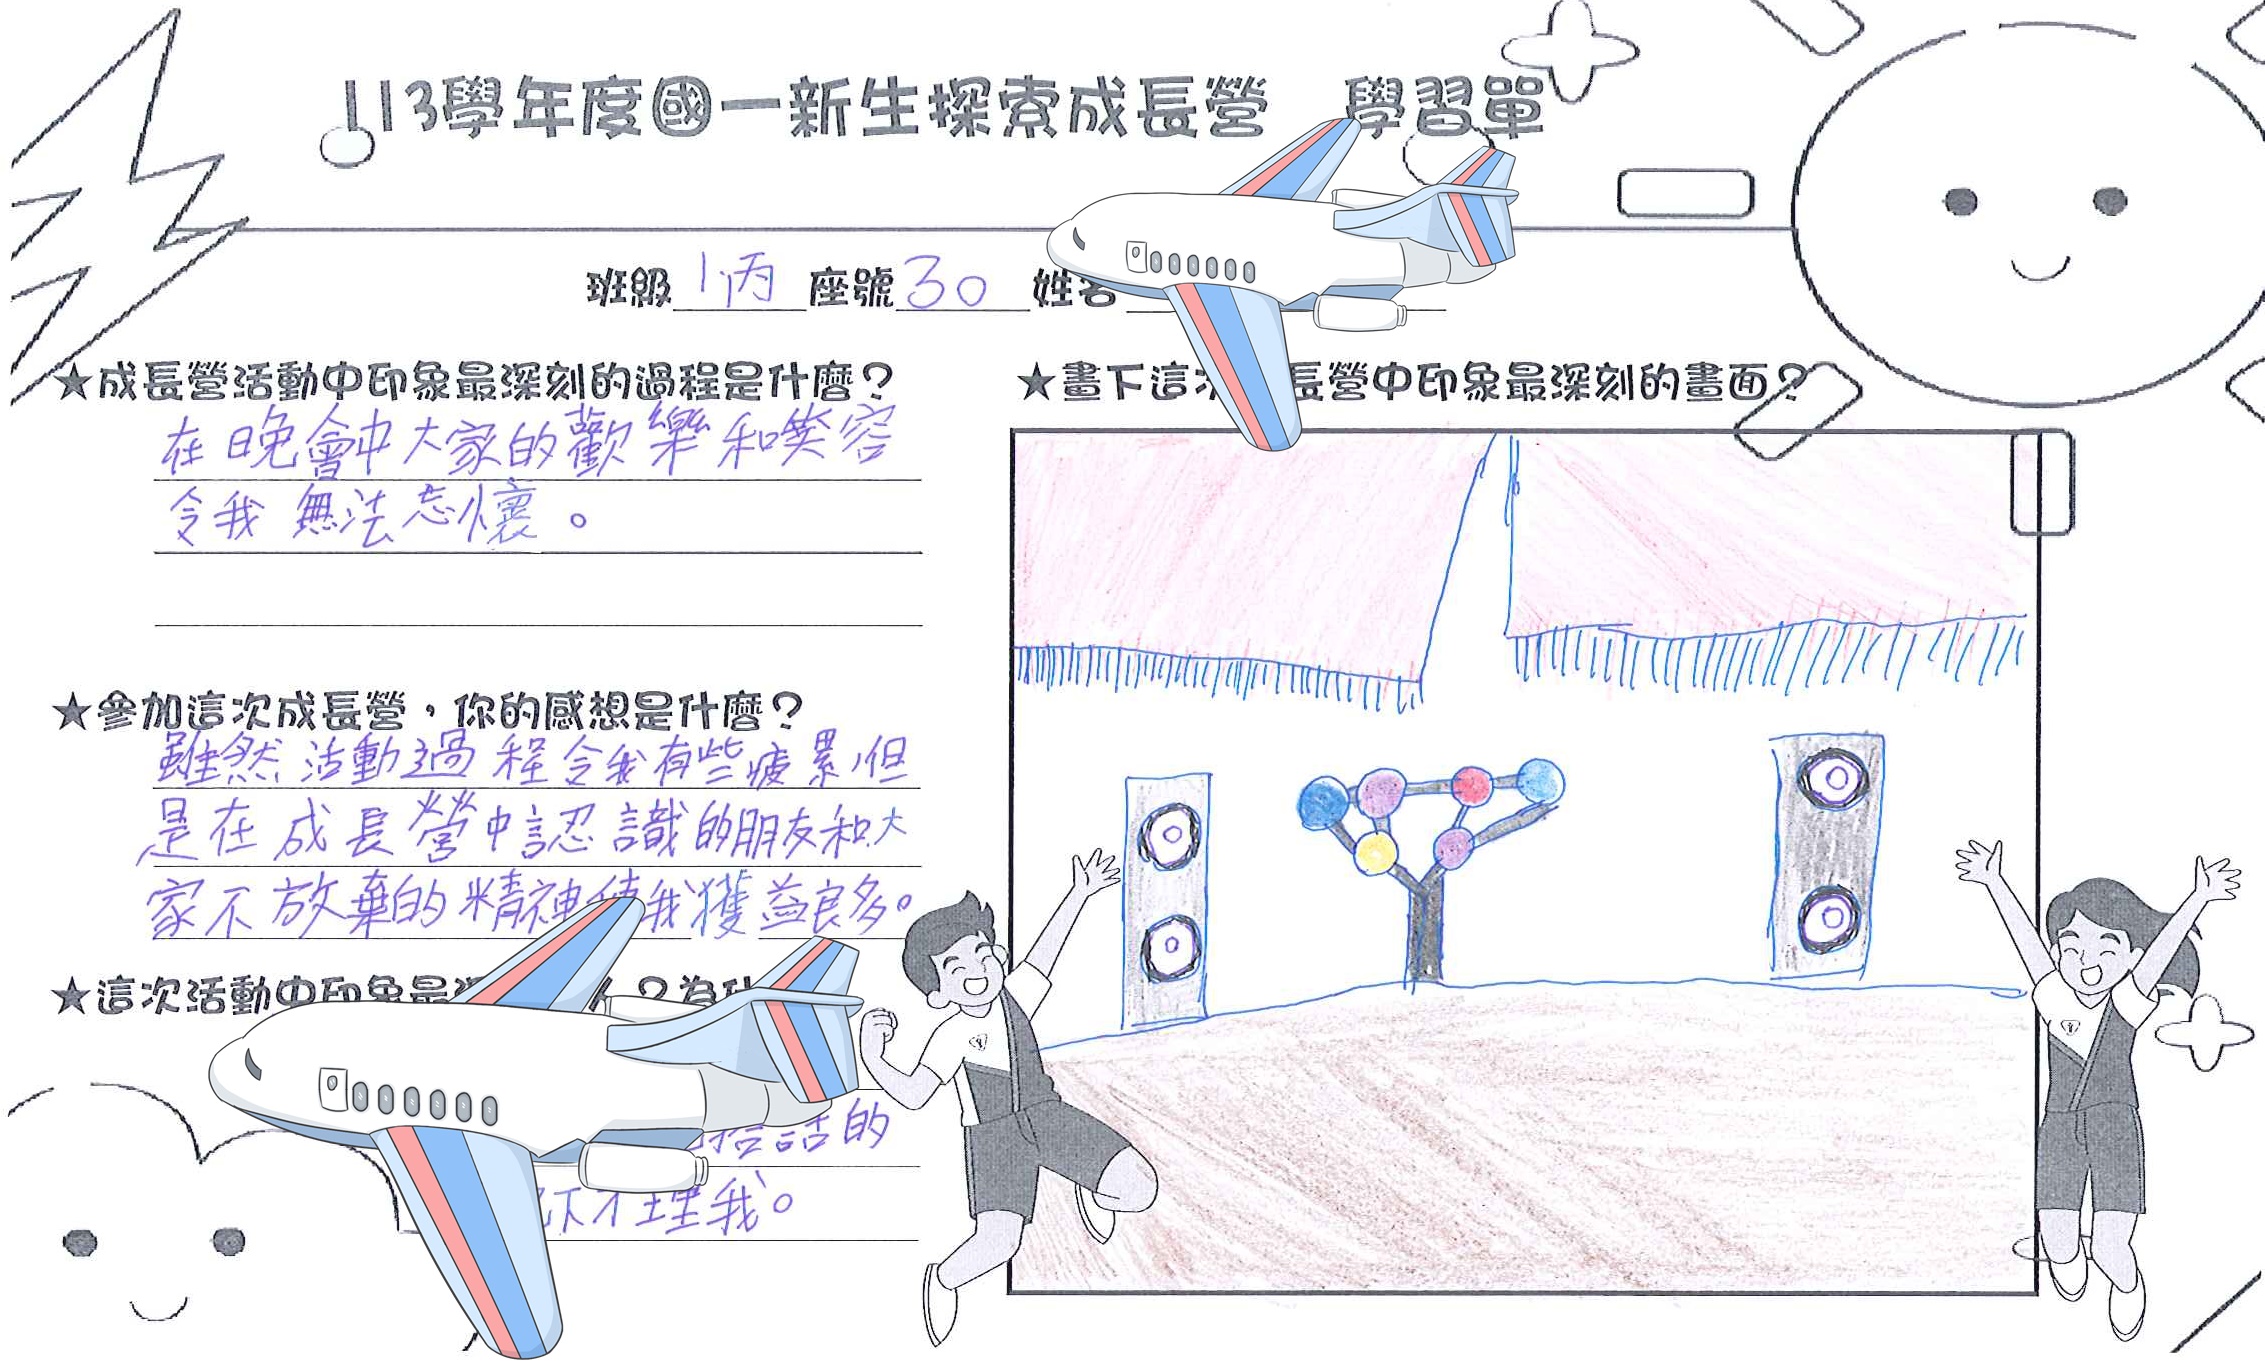 113學年度國一新生探索成長營 學習單
班級 1丙 座號 30 姓名
★成長營活動中印象最深刻的過程是什麼?
在晚會中大家的歡樂和笑容
令我無法忘懷。
★參加這次成長營,你的感想是什麼?
雖然活動過程令我有些疲累,但
是在成長營中認識的朋友和大
家不放棄的精神使我獲益良多。
★這次活動中印象最深 ?為什
話的
不理我。
★畫下這次 長營中印象最深刻的畫面?